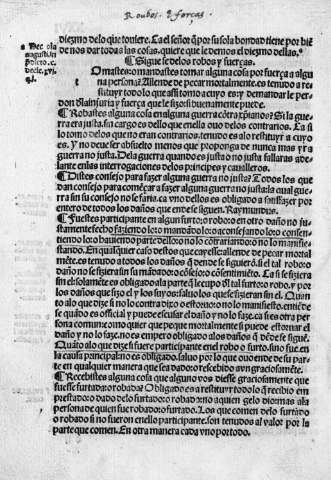 Roubos. & forças
diezmo delo que touiere. Ca el señor q̃ por su sola bondad tiene por biẽ
de nos dar todas las cosas, quiere que le demos el diezmo dellas.
¶ Sigue se delos robos y fuerças.
O mataste: o mandastes tomar alguna cosa por fuerça a algu
na persona. Allende de pecar mortalmente. es tenudo a re
stituyr todo lo que assi tomo a cuyo es y demandar le per
don dla injuria y fuerça que le fizo: si buenamente puede.
¶ Robastes alguna cosa en alguna guerra cõtra xp̃ianos? Si la gue
rra era justa. sin cargo es dello que en ella ouo delos contrarios. Ca si a
lo tomo delos que no eran contrarios. tenudo es alo restituyr a cuyo
es. Y no deue ser absuelto menos que proponga de nunca mas yr a
guerra no justa. Dela guerra quando es justa o no justa fallaras ade
lante enlas interrogaciones delos principes y caualleros.
¶ Distes consejo para fazer alguna guerra no justa? Todos los que
dan consejo para començar a fazer alguna guerra no justa: la qual gue
rra sin su consejo no se faria. ca vno dellos es obligado a satisfazer por
entero de todos los daños que ende se siguen. Raymundus.
¶ Fuestes participante en algun furto: o robo: o en otro daño no ju
stamente fecho faziendo lo: o mandãdo lo: o acõsejando lo: o consen
tiendo lo: o hauiendo parte dello: o no lo cõtrariando: o no lo manifie
stando. En qualquier caso destos que cayesse allende de pecar mortal
mẽte. es tenudo a todos los daños q̃ dende se siguierõ. si el tal robo: o
daño no se fiziera sin su mãdado: o cõsejo: o cõsentimiẽto. Ca si se fiziera
sin el: solamẽte es obligado ala parte q̃ le cupo dl tal furto: o robo. y por
los daños que fizo el y los suyos: saluo los que se fizieran sin el. Quan
to alo que dize si no lo contradixo o estoruo: o no lo manifiesto. entiẽde
se quãdo es official y puede escusar el daño y no lo faze. ca si es otra per
sona comun: como quier que peque mortalmente si puede estoruar el
daño y no lo faze. no es empero obligado alos daños q̃ dẽde se siguẽ.
Quãto alo que dize si fuere participante en el robo o furto. si no fue en
la causa principal no es obligado. saluo por lo que ouo ende de su par
te en qualquier manera que sea dado: o rescebido avn graciosamẽte.
¶ Recebistes alguna cosa que alguno vos diesse graciosamente que
fuesse furtada: o robada? Obligado es a restituyr todo lo q̃ recibio em
prestado: o dado delo furtado: o robado: o no a quien gelo dio: mas ala
persona de quien fue robado: o furtado. Los que comen delo furtado
o robado si no fueron en ello participante. son tenudos al valor por la
parte que comen. En otra manera cada vno por todo.